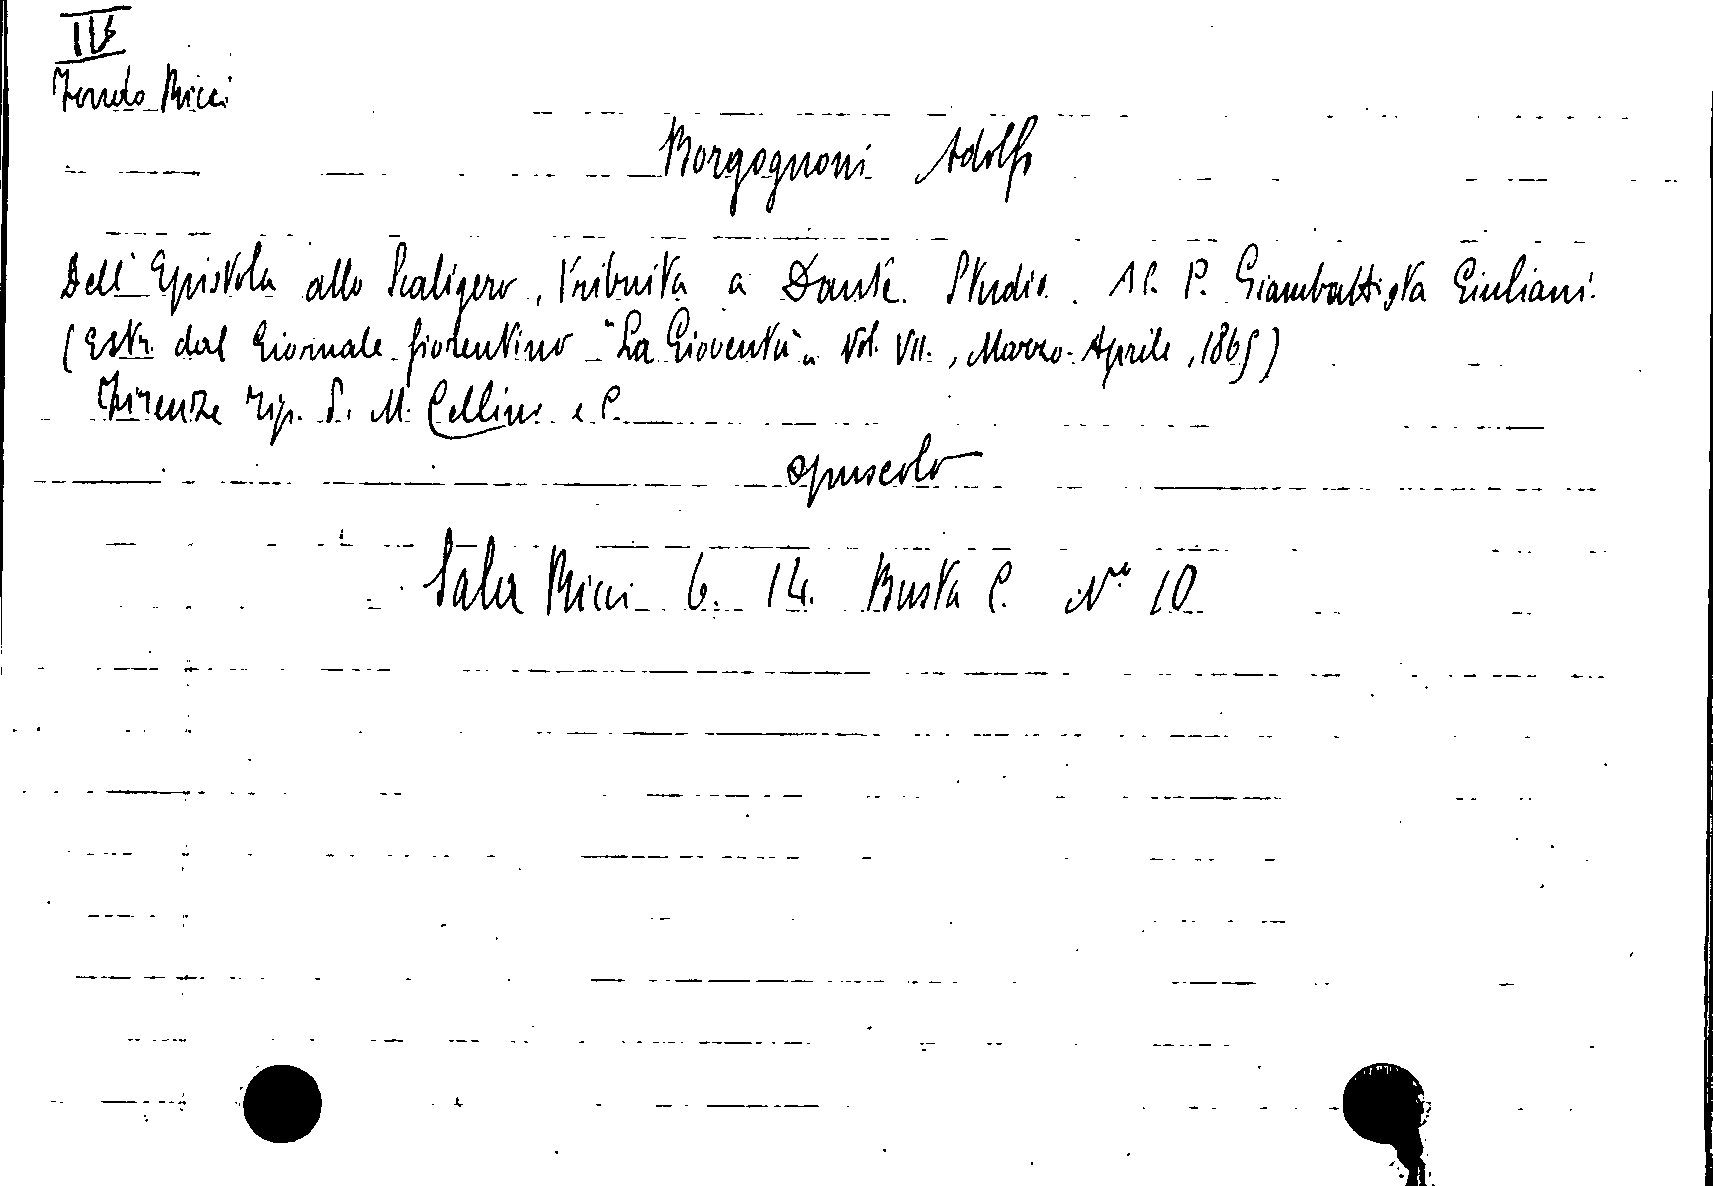 IV
Fondo Ricci
Borgognoni Adolfo
Dell'Epistola allo Scaligero, tribuita a Dante. Studio. Al P. Giambattista Giuliani.
(Estr. dal Giornale fiorentino "La Gioventù" Vol. VII., Marzo-Aprile, 1865)
Firenze Tip. di M. Cellini e C.
opuscolo
Sala Ricci 6. 14. Busta C. N° 10